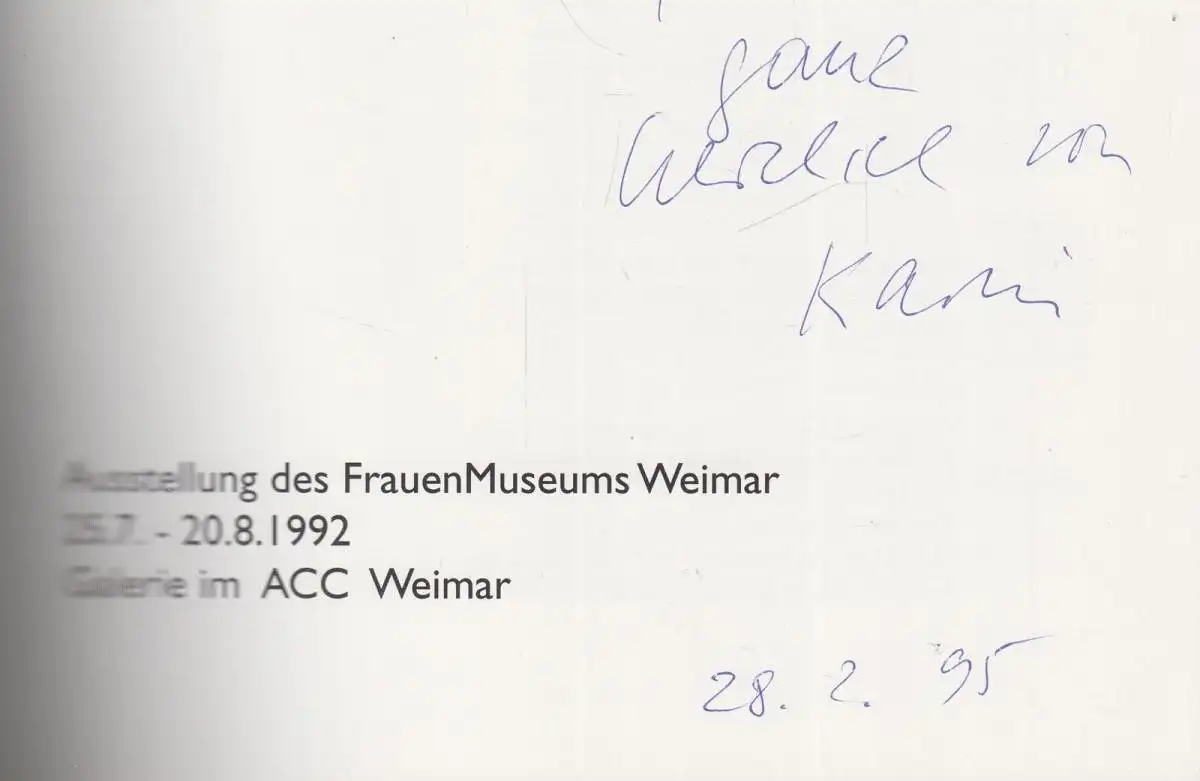 ganz
herzlich von
Karin
Ausstellung des FrauenMuseums Weimar
25.7. - 20.8.1992
Galerie im ACC Weimar
28. 2. 95